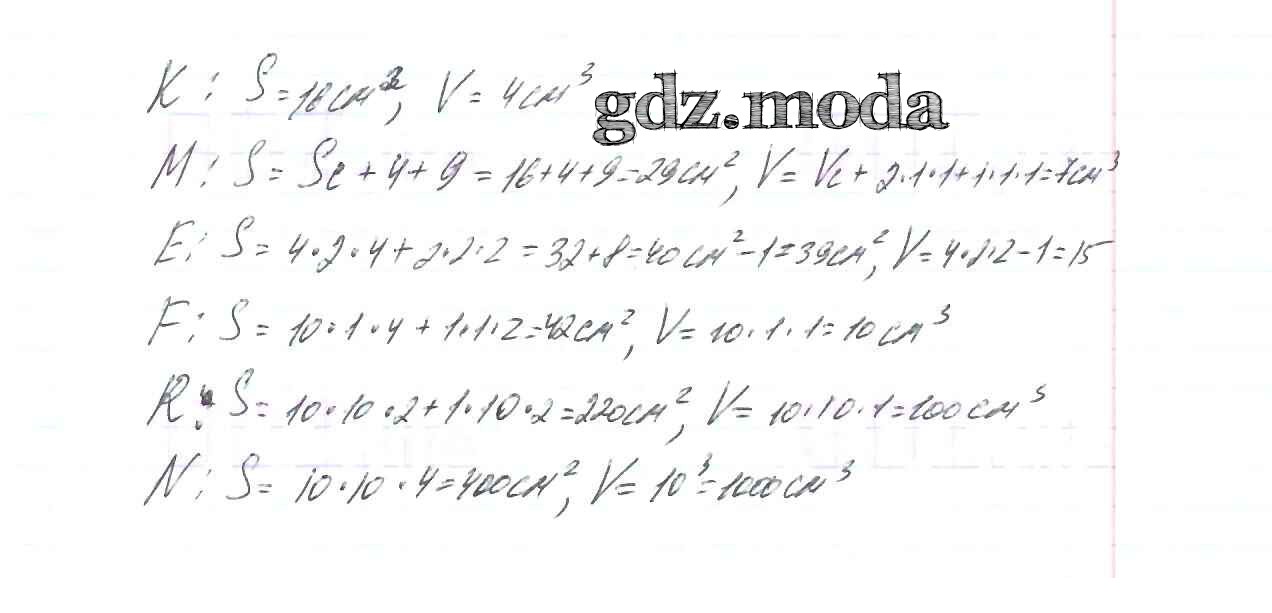 K: S = 16см², V = 4см³
gdz.moda
M: S = Sк + 4 + 9 = 16+4+9=29см², V = Vк + 2·1·1+1·1·1=7см³
E: S = 4·2·4 + 2·2·2 = 32+8=40см²-1=39см², V = 4·2·2-1=15
F: S = 10·1·4 + 1·1·2=42см², V = 10·1·1=10см³
R: S = 10·10·2+1·10·2=220см², V = 10·10·1=100см³
N: S = 10·10·4=400см², V = 10³=1000см³